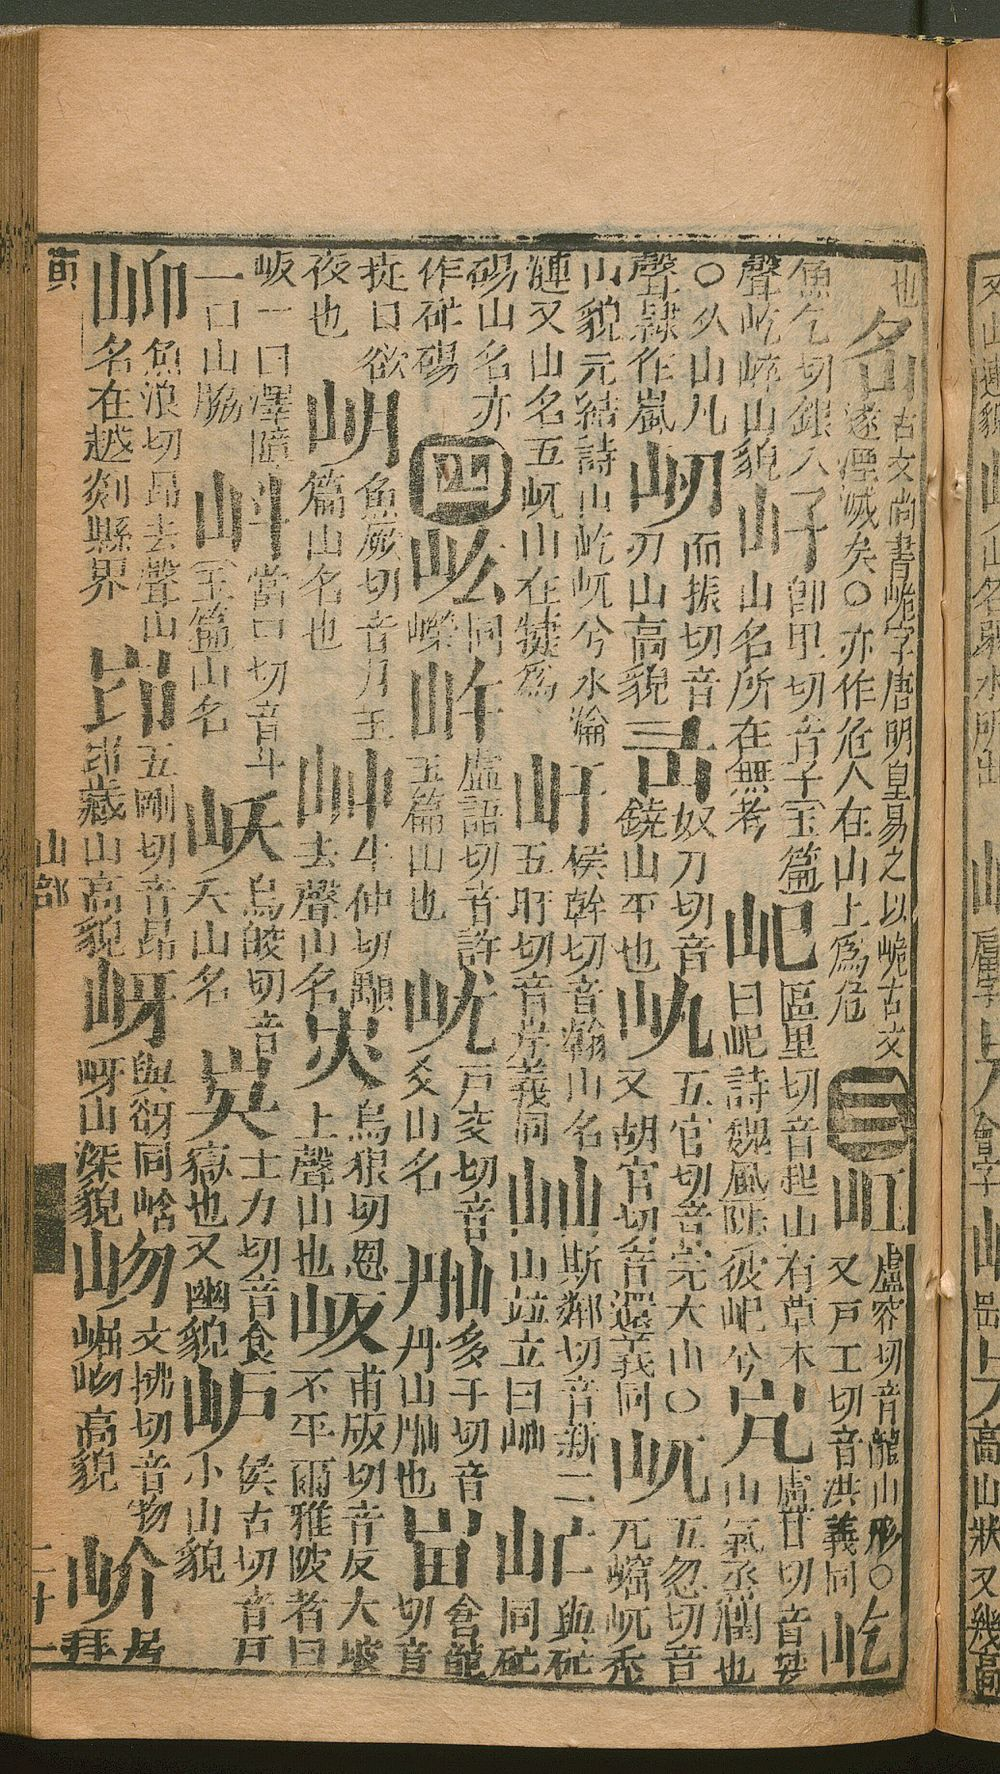 也
古文尚書峗字唐明皇易之以峗古文
遂湮滅矣〇亦作危人在山上爲危
三
屸
盧容切音龍山形〇
又戸工切音洪義同
屹
魚乞切銀入
聲屹崪山貌
即里切音子玉篇
山名所在無考
屺
區里切音起山有草木
曰屺詩魏風陟彼屺兮
盧廿切音婪
山氣烝潤也
〇从山凡
聲隷作嵐
屻
而振切音
刃山高貌
奴刀切音
鐃山平也
五官切音完大山〇
又胡官切音還義同
屼
五忽切音
兀崛屼禿
山貌元結詩山屹屼兮水淪
漣又山名五屼山在犍爲
屽
侯幹切音翰山名
五旰切音岸義同
屾
斯鄰切音新二
山竝立曰屾
與硭
同硭
碭山名亦
作硭碭
四
同
虛語切音許
玉篇山也
戸交切音
爻山名
多干切音
丹山也
龍
切音
日欲
夜也
岄
魚厥切音月玉
篇山名也
牛仲切顒
去聲山名
烏狠切恩
上聲山也
岅
甫版切音反大坡
不平爾雅陂者曰
岅一曰澤障
一曰山脇
當口切音斗
玉篇山名
岆
烏皎切音
夭山名
士力切音食
嶽也又幽貌
侯古切音戸
小山貌
岇
魚浪切昂去聲山
名在越剡縣界
五剛切音昂
山高貌
岈
與谺同
岈山深貌
岉
文拂切音物
崛岉高貌
岕
居
拜
山部
二十一